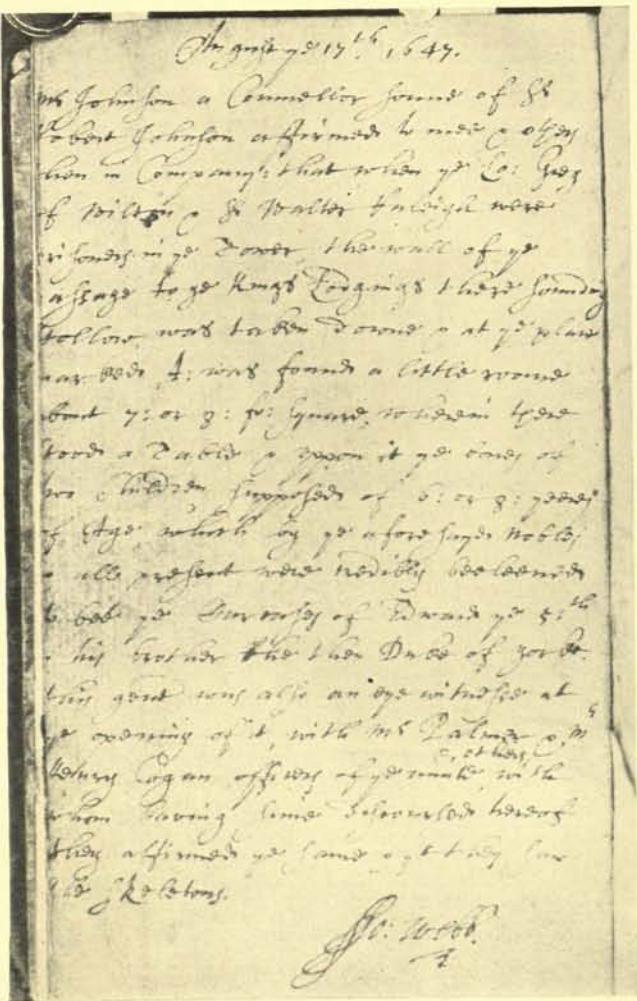 August ye 17th: 1647.
mr Johnson a Counsellor sonne of Sr
Robert Johnson affirmed to mee & others
then in Company; that when ye Lo: Grey
of Wilton & Sr Walter Raleigh were
prisoners in ye Tower, the wall of ye
passage to ye Kings Lodgings there sounding
hollow, was taken downe & at ye place
marked A: was found a little roome
about 7: or 8: fo: square, wherein there
stood a Table & uppon it ye bones of
two children supposed of 6: or 8: yeeres
of Age, which by ye aforesayd Nobles
& all present were credibly beeleeved
to bee ye Carcasses of Edward ye 5:th
& his brother the then Duke of Yorke.
This gent was also an eye witnesse at
ye opening of it, with Mr Palmer & mr
Henry Cogan officers of ye mint & others, with
whom having since discoursed hereof
they affirmed ye same & yt they saw
the skeletons.
Jo: Webb.